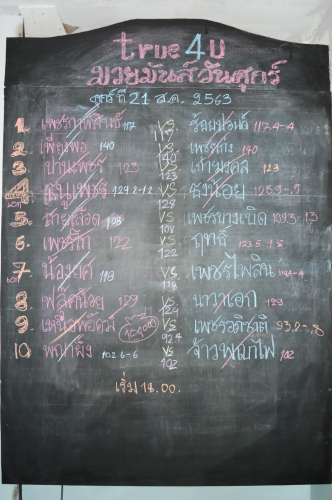 true4U
มวยมันส์วันศุกร์
ศุกร์ที่ 21 ส.ค. 2563
1. เพชรกาฬสินธุ์ 117 VS 117 ร้อย 117.4-4
2. เพียงพอ 140 VS 140 เพชรเก่ง 140
3. ปานเพชร 123 VS 123 เก้ามงคล 123
4. ธนูเพชร 129.2-1.2 VS 128 ธงน้อย 128.9-.9
5. สายเลือด 108 VS 108 เพชรบางเนิด 109.3-1.3
6. เพชรรัก 122 VS 122 ฤทธิ์ 123.5-1.5
7. น้องยศ 118 VS 118 เพชรไพลิน
8. พลิกน้อย VS 124 นาวาเอก 123
9. เหนือพยัคฆ์ VS 92.4 เพชรอภิชาติ 93.2-.8
10 พญาผึ้ง 102.6-6 VS 102 จ้าวพญาไฟ 102
เริ่ม 18.00.